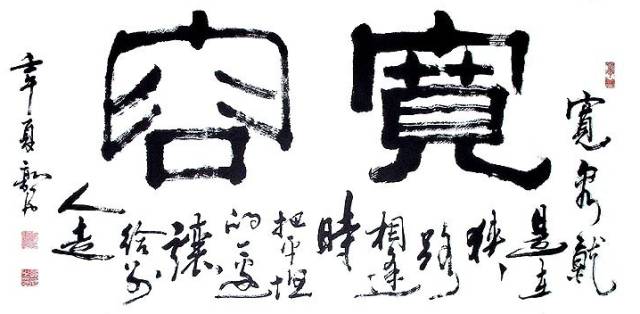 寬容
寬容就
是在
狹
路
相逢
時
把平坦
的一邊
讓
給別
人走
壬午夏